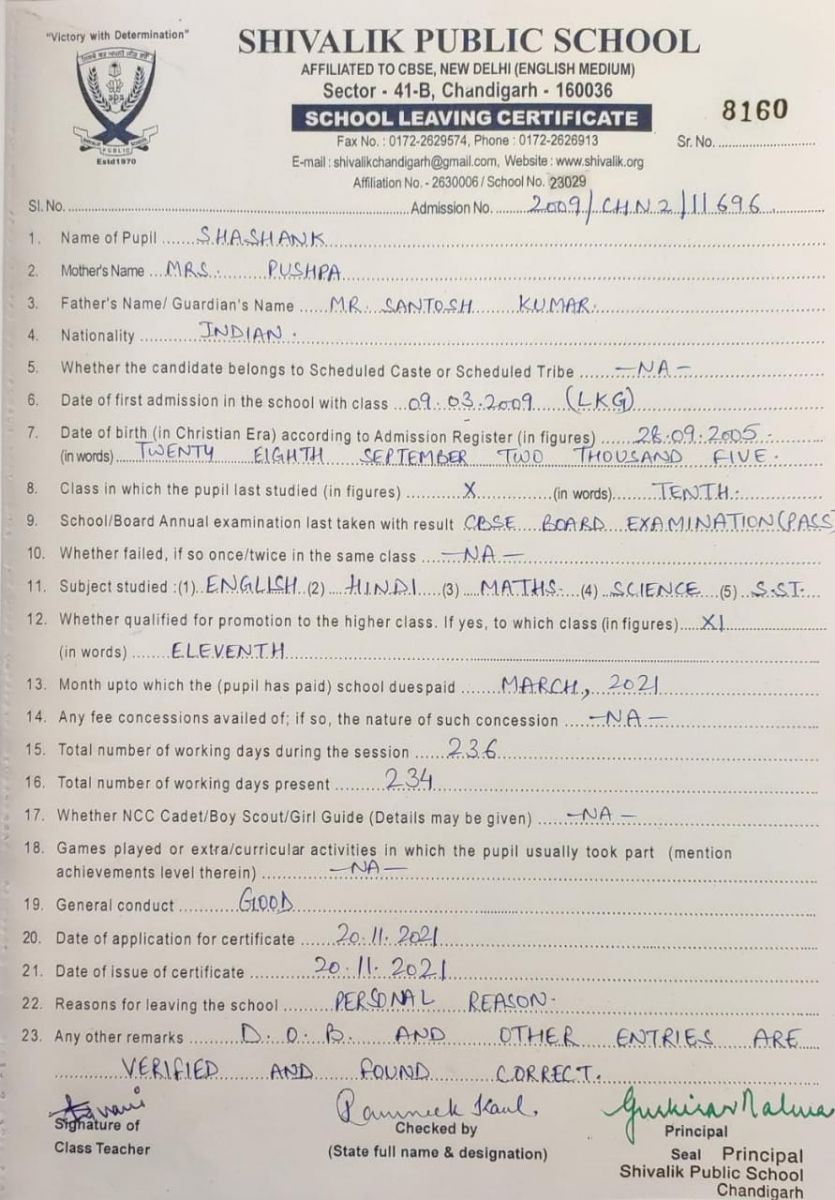 "Victory with Determination"
SHIVALIK PUBLIC SCHOOL
AFFILIATED TO CBSE, NEW DELHI (ENGLISH MEDIUM)
Sector - 41-B, Chandigarh - 160036
SCHOOL LEAVING CERTIFICATE
8160
Fax No. : 0172-2629574, Phone : 0172-2626913
Sr. No.
E-mail : shivalikchandigarh@gmail.com, Website : www.shivalik.org
Affiliation No. - 2630006 / School No. 23029
SHIVALIK PUBLIC SCHOOL
Estd1970
Sl. No. Admission No. 2009/CHN2/11696
1. Name of Pupil SHASHANK
2. Mother's Name MRS. PUSHPA
3. Father's Name/ Guardian's Name MR. SANTOSH KUMAR.
4. Nationality INDIAN.
5. Whether the candidate belongs to Scheduled Caste or Scheduled Tribe -NA-
6. Date of first admission in the school with class 09.03.2009 (LKG)
7. Date of birth (in Christian Era) according to Admission Register (in figures) 28.09.2005.
(in words) TWENTY EIGHTH SEPTEMBER TWO THOUSAND FIVE.
8. Class in which the pupil last studied (in figures) X (in words) TENTH.
9. School/Board Annual examination last taken with result CBSE BOARD EXAMINATION (PASS)
10. Whether failed, if so once/twice in the same class -NA-
11. Subject studied :(1) ENGLISH (2) HINDI (3) MATHS. (4) SCIENCE (5) S.ST.
12. Whether qualified for promotion to the higher class. If yes, to which class (in figures) XI
(in words) ELEVENTH
13. Month upto which the (pupil has paid) school duespaid MARCH, 2021
14. Any fee concessions availed of; if so, the nature of such concession -NA-
15. Total number of working days during the session 236
16. Total number of working days present 234
17. Whether NCC Cadet/Boy Scout/Girl Guide (Details may be given) -NA-
18. Games played or extra/curricular activities in which the pupil usually took part (mention
achievements level therein) -NA-
19. General conduct GOOD
20. Date of application for certificate 20.11.2021
21. Date of issue of certificate 20.11.2021
22. Reasons for leaving the school PERSONAL REASON.
23. Any other remarks D.O.B. AND OTHER ENTRIES ARE
VERIFIED AND FOUND CORRECT.
Signature of
Class Teacher
Ramneek Kaul.
Checked by
(State full name & designation)
Principal
Seal Principal
Shivalik Public School
Chandigarh